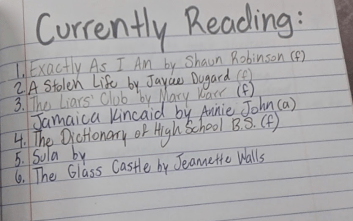 Currently Reading:
1. Exactly As I Am by Shaun Robinson (f)
2. A Stolen Life by Jaycee Dugard (f)
3. The Liars' Club by Mary Karr (f)
Jamaica Kincaid by Annie John (a)
4. The Dictionary of High School B.S. (f)
5. Sula by
6. The Glass Castle by Jeannette Walls